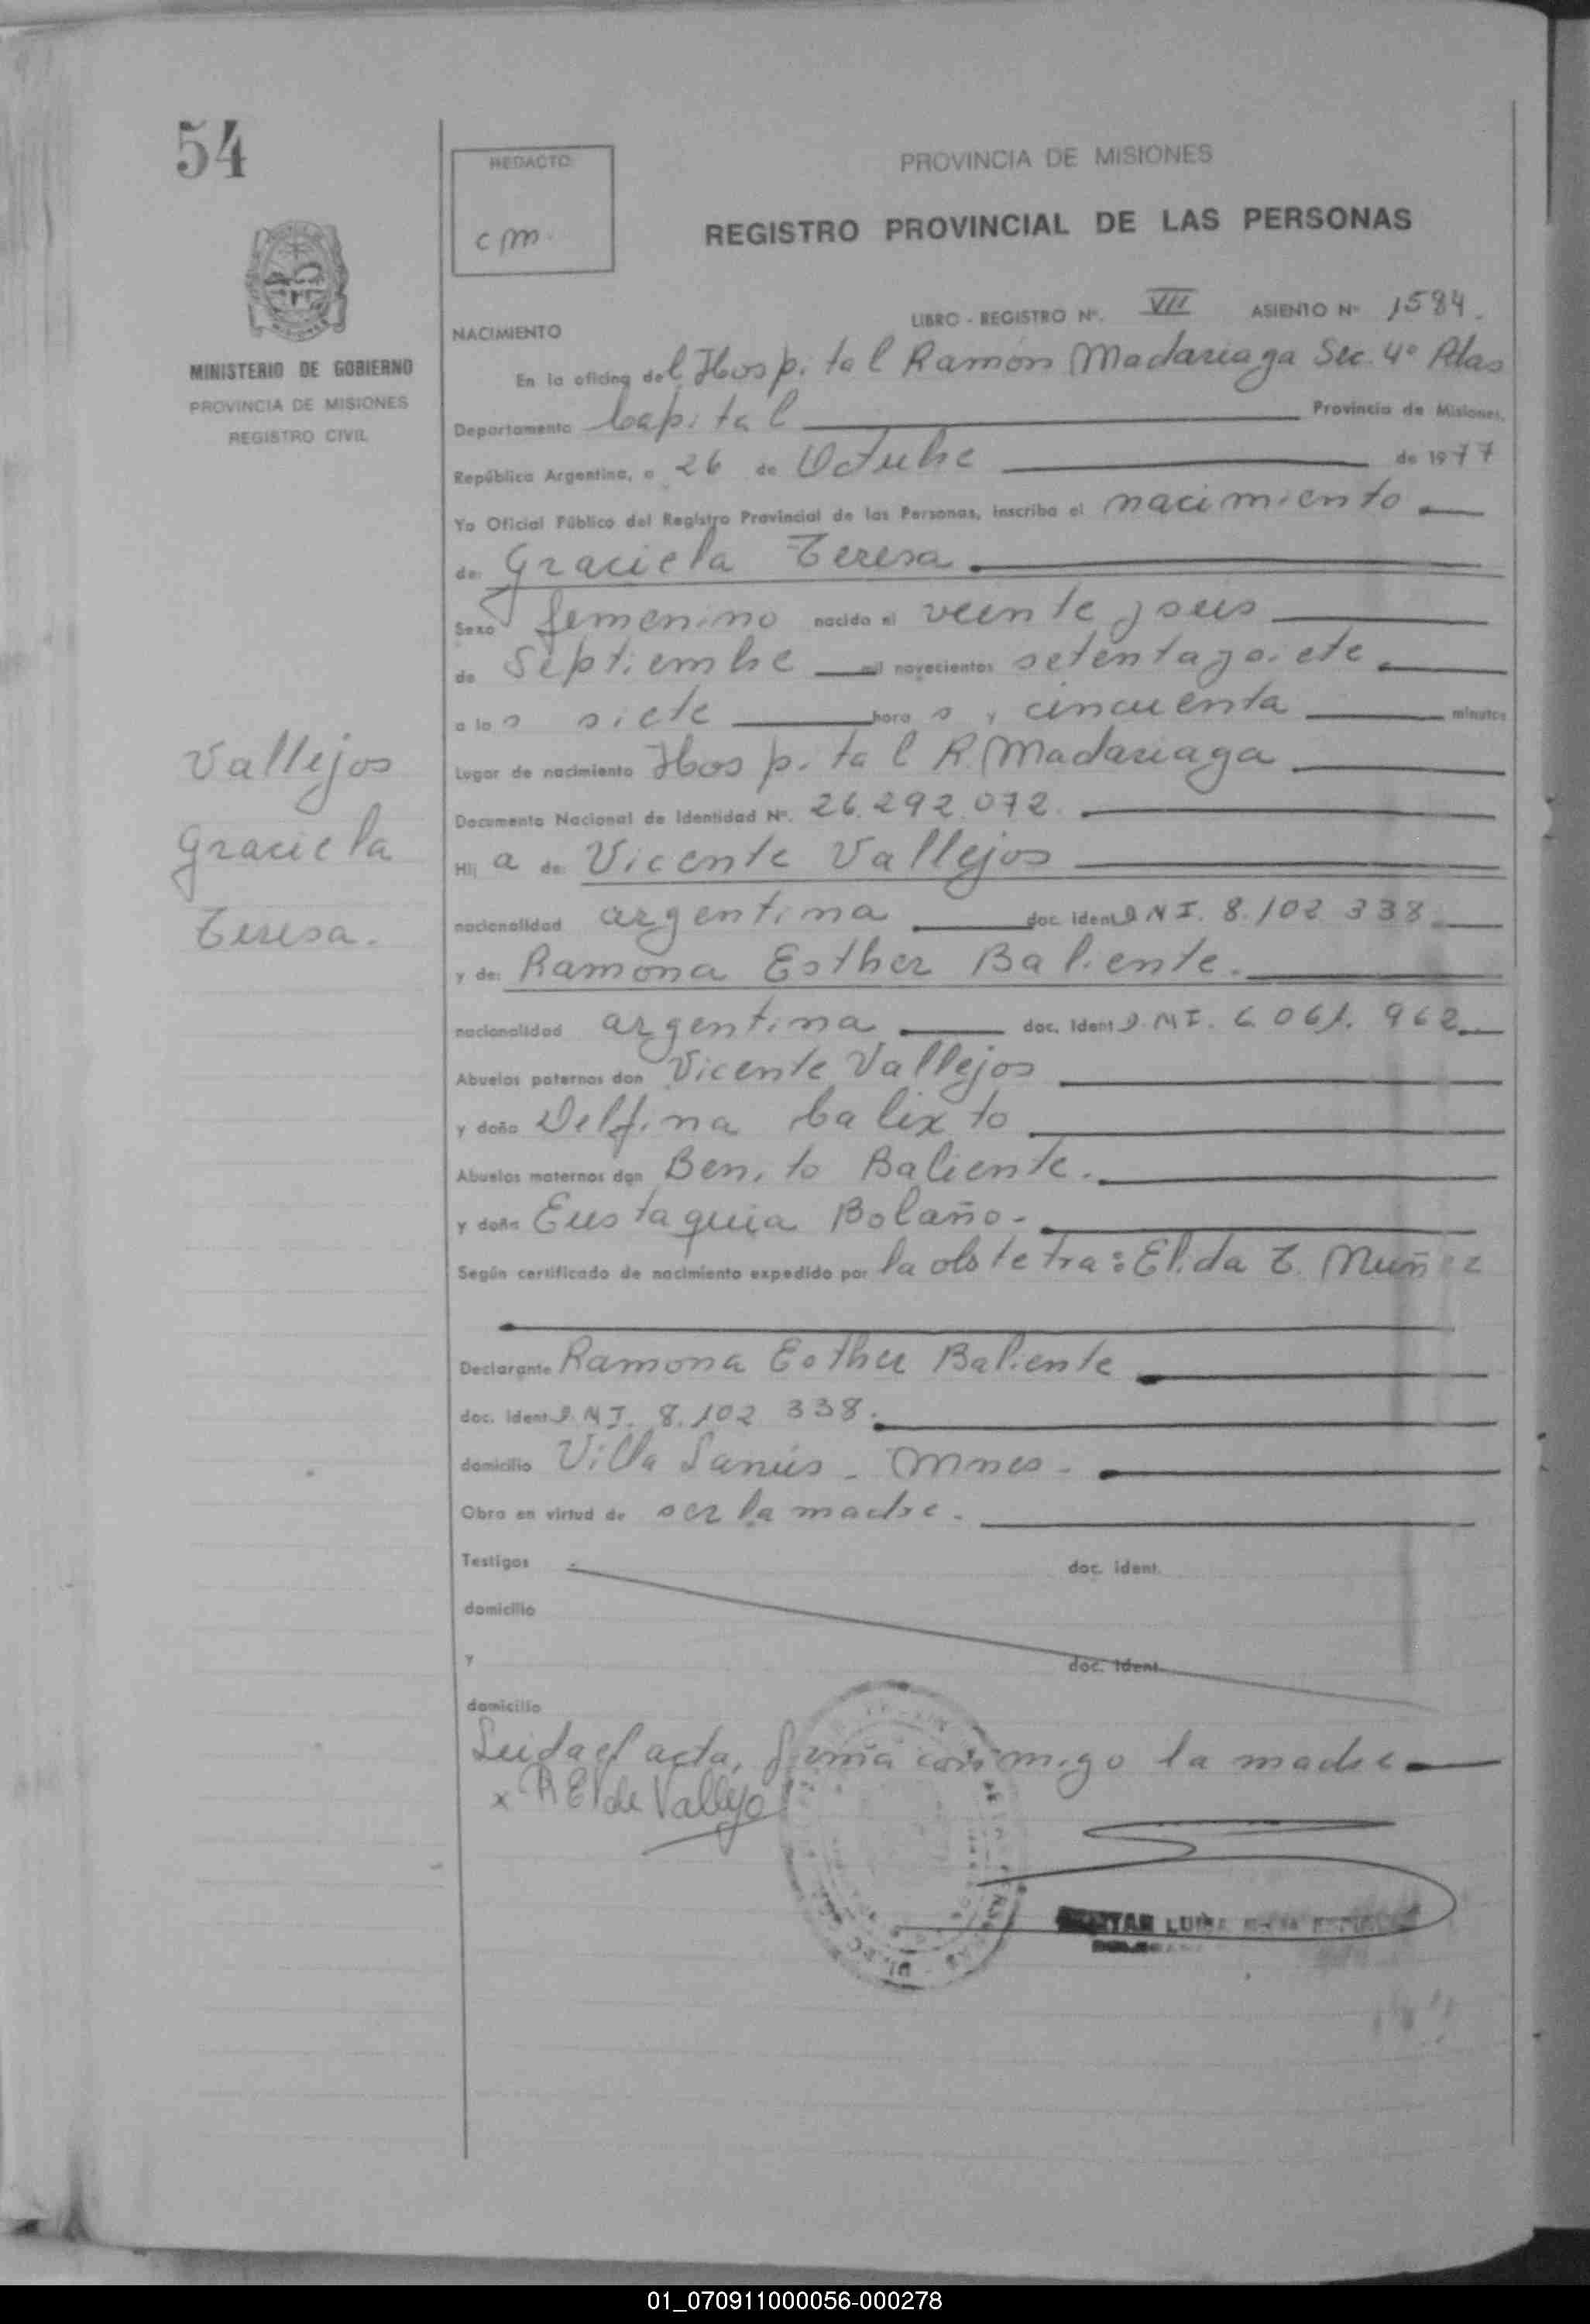 54
REDACTO
cm.
PROVINCIA DE MISIONES
REGISTRO PROVINCIAL DE LAS PERSONAS
MINISTERIO DE GOBIERNO
PROVINCIA DE MISIONES
REGISTRO CIVIL
LIBRO - REGISTRO Nº. VII ASIENTO Nº 1584.
NACIMIENTO
En la oficina del Hospital Ramón Madariaga Sec. 4º Pdas
Departamento Capital Provincia de Misiones,
República Argentina, a 26 de Octubre de 1977
Yo Oficial Público del Registro Provincial de las Personas, inscribo el nacimiento
de: Graciela Teresa
Sexo femenino nacido el veinte y seis
de Septiembre mil novecientos setenta y siete
a las siete horas y cincuenta minutos
Lugar de nacimiento Hospital R. Madariaga
Documento Nacional de Identidad Nº. 26.292.072.
Hija de: Vicente Vallejos
nacionalidad argentina doc. ident D N I. 8.102.338.
y de: Ramona Esther Baliente.
nacionalidad argentina doc. ident D. N I. 6.061.962
Abuelos paternos don Vicente Vallejos
y doña Delfina Calixto
Abuelos maternos don Benito Baliente.
y doña Eustaquia Bolaño-
Según certificado de nacimiento expedido por la obstetra: Elida T. Muñoz
Declarante Ramona Esther Baliente
doc. ident D. N I. 8.102.338.
domicilio Villa Lanús - Mnes -
Obra en virtud de ser la madre.
Testigos doc. ident.
domicilio
y doc. ident.
domicilio
Leida el acta, firma conmigo la madre
x R E B de Vallejo
LUISA
Vallejos
Graciela
Teresa.
01_070911000056-000278